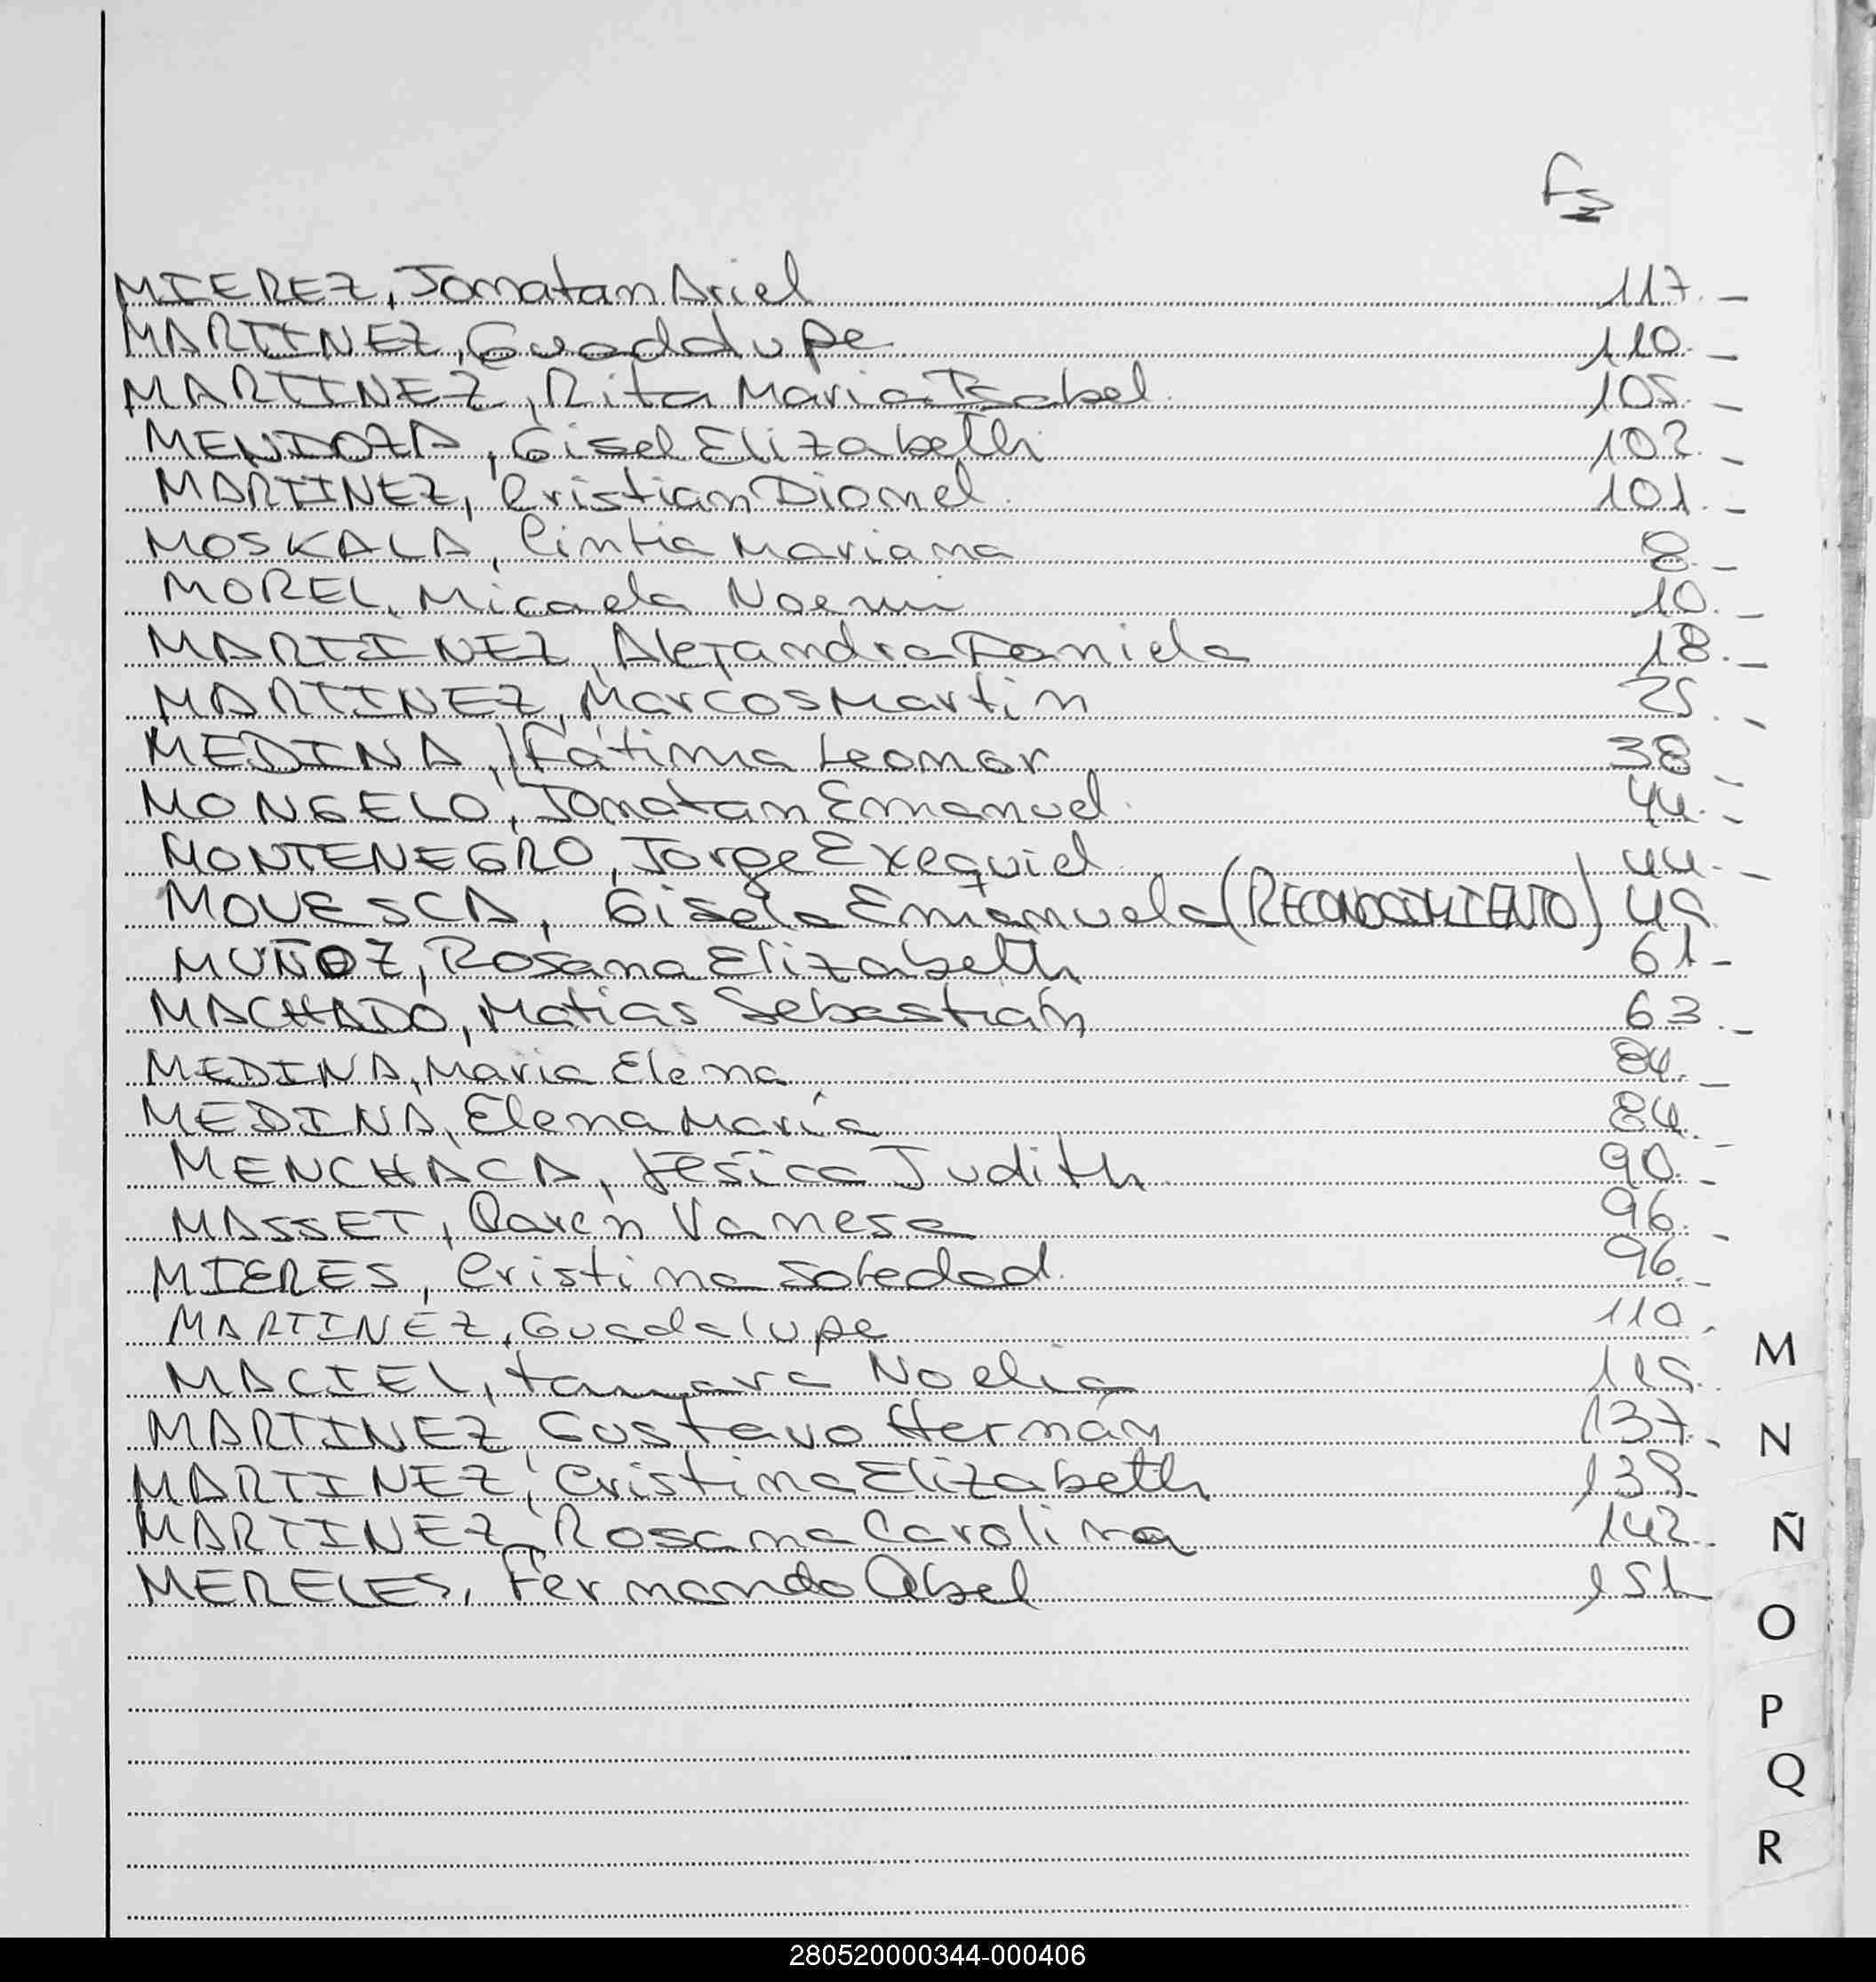 Fs
MIEREZ, Jonatan Ariel 117.-
MARTINEZ, Guadalupe 110.-
MARTINEZ, Rita Maria Isabel 105.-
MENDOZA, Gisel Elizabeth 102.-
MARTINEZ, Cristian Dionel 101.-
MOSKALA, Cintia Mariana 8.-
MOREL, Micaela Noemi 10.-
MARTINEZ, Alejandra Daniela 18.-
MARTINEZ, Marcos Martin 25.-
MEDINA, Fátima Leonor 38.-
MONGELO, Jonatan Emanuel 44.-
MONTENEGRO, Jorge Exequiel 44.-
MOVESCA, Gisela Emanuela (RECONOCIMIENTO)
MUÑOZ, Rosana Elizabeth 61-
MACHADO, Matias Sebastián 63.-
MEDINA, Maria Elena 84.-
MEDINA, Elena María 84.-
MENCHACA, Jésica Judith 90.-
MASSET, Caren Vanesa 96.-
MIERES, Cristina Soledad 96.-
MARTINEZ, Guadalupe 110.-
MACIEL, tamara Noelia
MARTINEZ, Gustavo Hernán 137.-
MARTINEZ, Cristina Elizabeth
MARTINEZ, Rosana Carolina 142.-
MERELES, Fernando Abel 151-
M
N
Ñ
O
P
Q
R
280520000344-000406